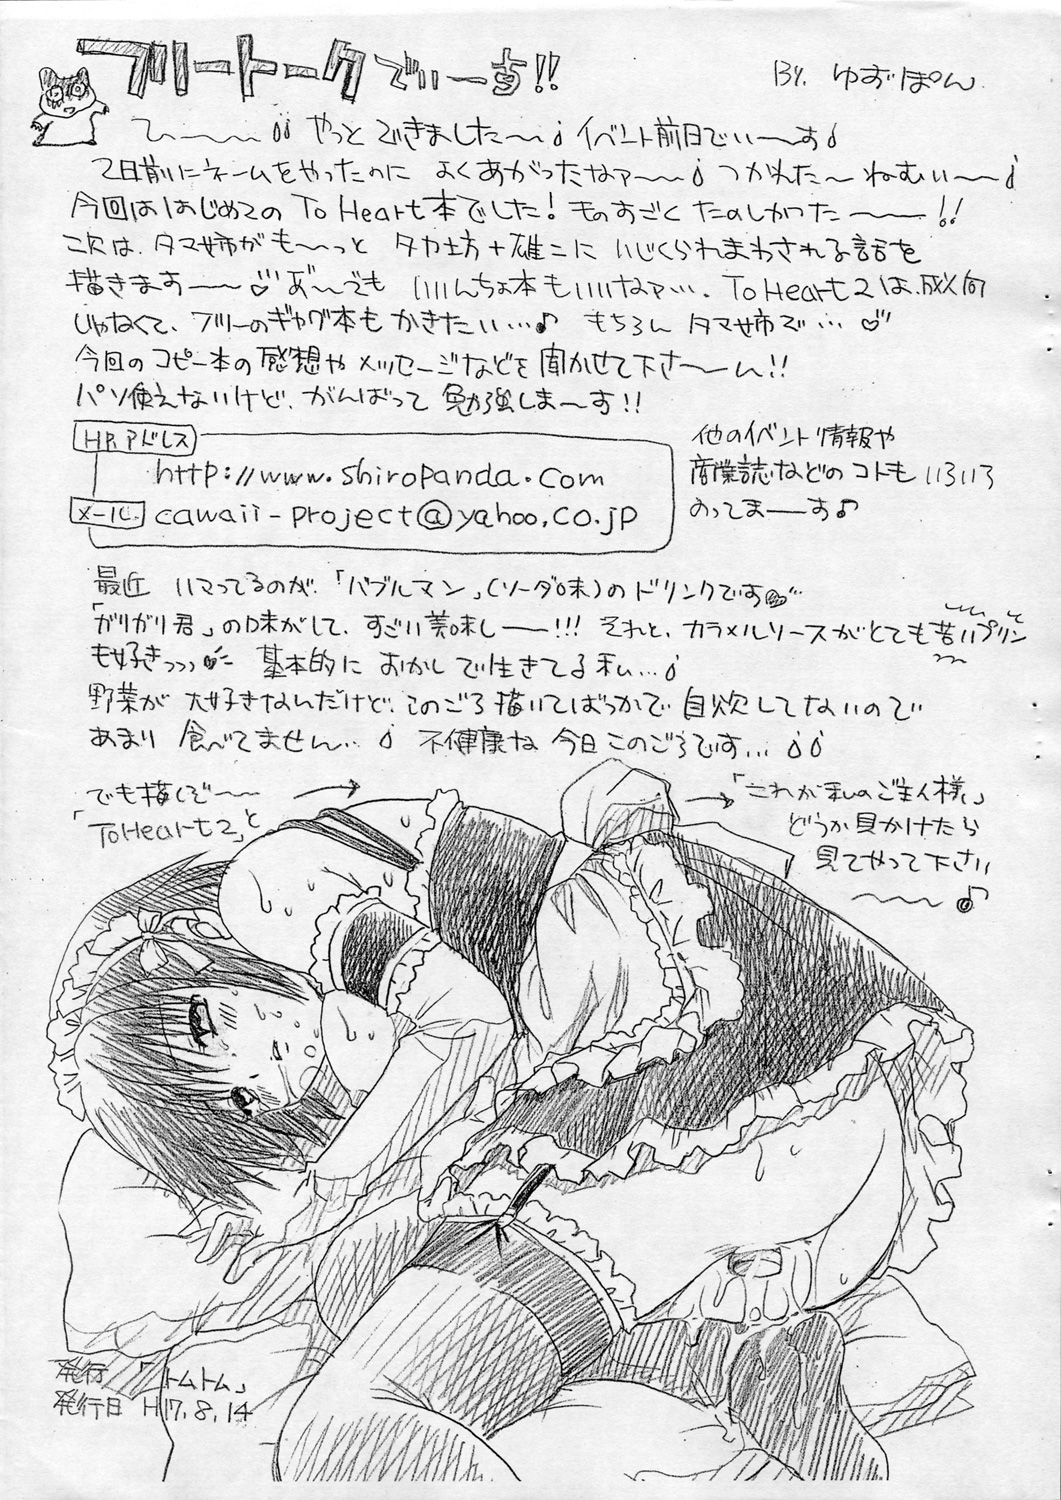 フリートークでぃーす!!
BY. ゆずぽん
ひ〜〜〜 やっとできました〜 イベント前日でぃーす
2日前にネームをやったのに よくあがったなァ〜〜 つかれた〜 ねむい〜
今回ははじめての To Heart本でした! ものすごく たのしかった〜〜!!
次は、タマ姉がも〜っと タカ坊+雄二に いじくられまわされる話を
描きます〜〜♡ あ゛〜でも いいんちょ本もいいなァ…. To Heart2は、成人向
じゃなくて、フリーのギャグ本も かきたい…♪ もちろん タマ姉で…♡
今回のコピー本の感想や メッセージなどを 聞かせて下さ〜〜い!!
パソ使えないけど、がんばって 勉強しま〜す!!
HP.アドレス
http://www.shiropanda.com
メール.
cawaii-project@yahoo.co.jp
他のイベント情報や
商業誌などのコトも いろいろ
のってま〜〜す♪
最近 ハマってるのが、「バブルマン」(ソーダ味)のドリンクです
「ガリガリ君」の味がして、すごい美味し〜〜!!! それと、カラメルソースがとても苦いプリン
も好きっっっ 基本的に おかしで生きてる私…
野菜が 大好きなんだけど、このごろ描いてばっかで 自炊してないので
あまり 食べてません… 不健康な 今日このごろです…
でも描くぞ〜〜
「ToHeart2」と
「これが私のご主人様」
どうか見かけたら
見てやって下さい
〜〜♪
発行 「トムトム」
発行日 H17.8.14